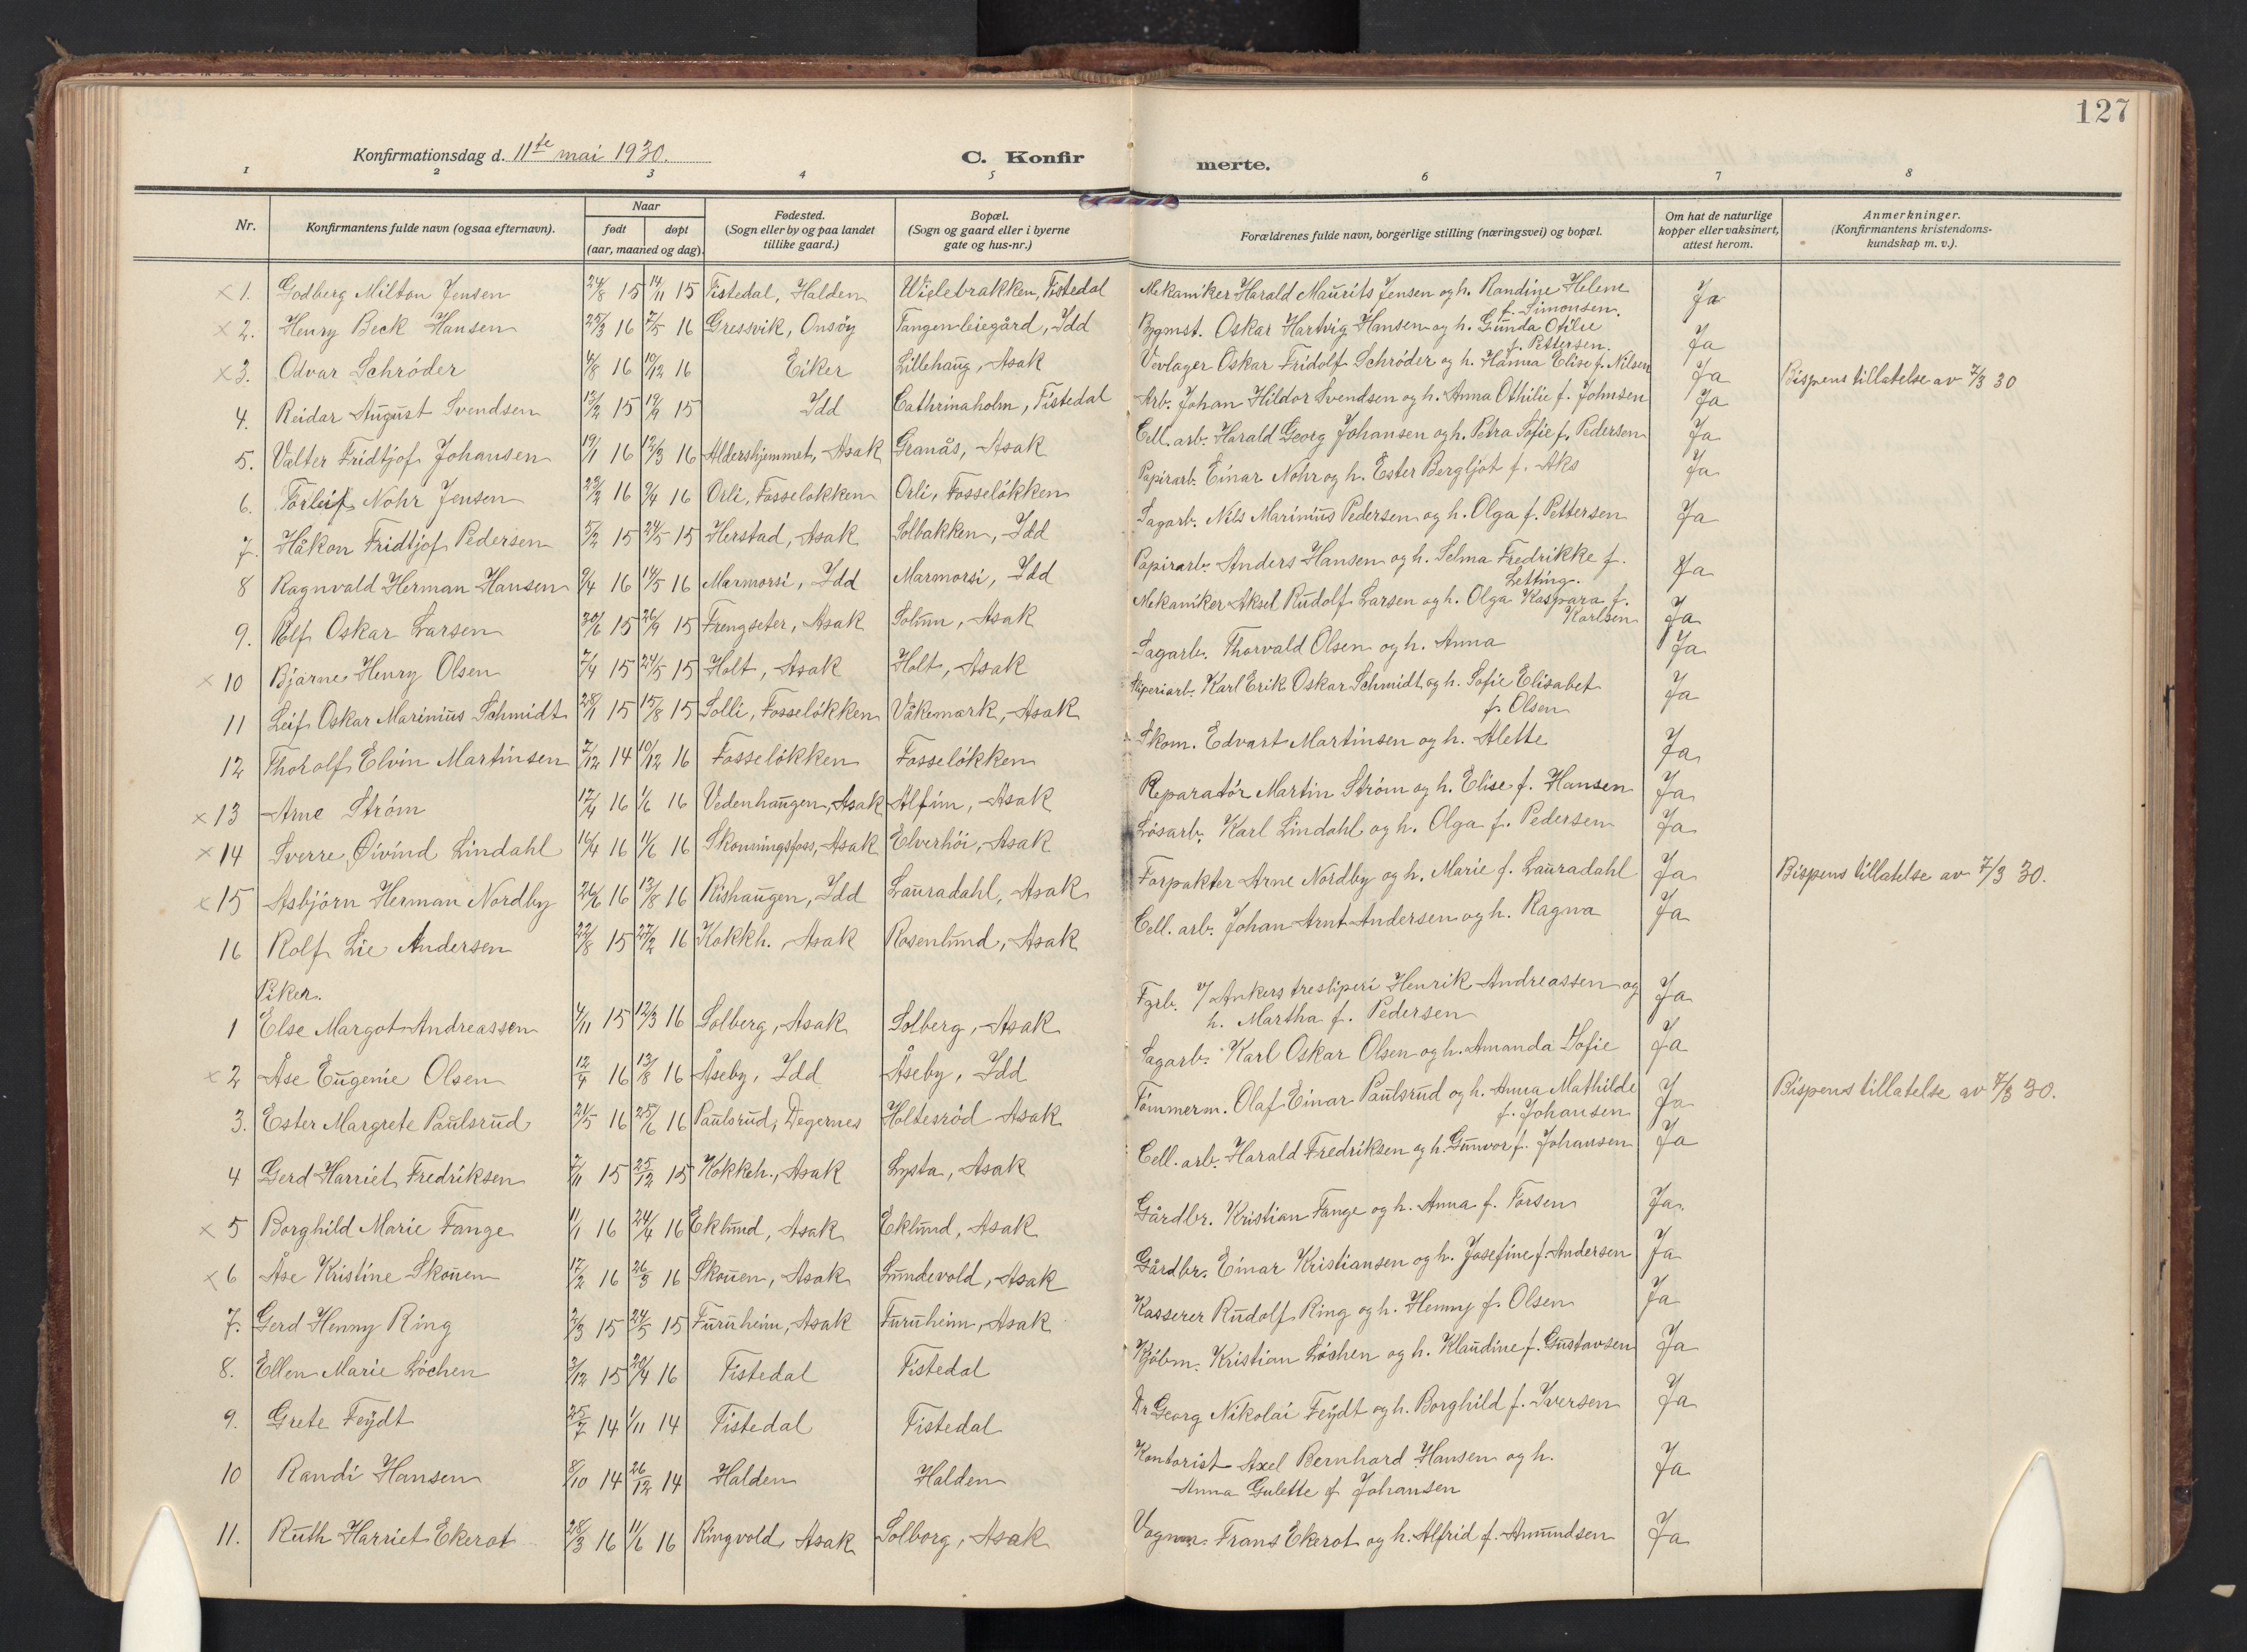 127
Konfirmationsdag d. 11te mai 1930.
C. Konfirmerte.
1 2 3 4 5 6 7 8
Nr. Konfirmantens fulde navn (ogsaa efternavn). Naar født døpt (aar, maaned og dag). Fødested. (Sogn eller by og paa landet tillike gaard.) Bopæl. (Sogn og gaard eller i byerne gate og hus-nr.) Forældrenes fulde navn, borgerlige stilling (næringsvei) og bopæl. Om hat de naturlige kopper eller vaksinert, attest herom. Anmerkninger. (Konfirmantens kristendomskundskap m. v.).
x 1. Godberg Milton Jensen 24/8 15 14/11 15 Tistedal, Halden Wielebakken, Tistedal Mekaniker Harald Maurits Jensen og h. Randine Helene f. Simonsen. Ja
x 2. Henry Beck Hansen 25/3 16 7/5 16 Gressvik, Onsöy Tangen leiegård, Idd Bygmst. Oskar Hartvig Hansen og h. Gunda Otilie f. Pettersen. Ja
x 3. Odvar Schröder 4/8 16 10/12 16 Eiker Lillehaug, Asak Vevlager Oskar Fridolf Schröder og h. Hanna Elise f. Nilsen Ja Bispens tillatelse av 7/3 30
4. Reidar August Svendsen 13/2 15 19/9 15 Idd Cathrinaholm, Tistedal Arb. Johan Hildor Svendsen og h. Anna Othilie f. Johnsen Ja
5. Valter Fridtjof Johansen 19/1 16 12/3 16 Aldershjemmet, Asak Granås, Asak Cell. arb. Harald Georg Johansen og h. Petra Sofie f. Pedersen Ja
6. Torleif Nohr Jensen 22/2 16 9/4 16 Orli, Fosselökken Orli, Fosselökken Papirarb. Einar Nohr og h. Ester Bergljot f. Aks Ja
7. Håkon Fridtjof Pedersen 5/2 15 24/5 15 Herstad, Asak Solbakken, Idd Sagarb. Nils Marinius Pedersen og h. Olga f. Pettersen Ja
8 Ragnvald Herman Hansen 9/4 16 14/5 16 Marmorsi, Idd Marmorsi, Idd Papirarb. Anders Hansen og h. Selma Fredrikke f. Letting. Ja
9. Rolf Oskar Larsen 30/6 15 26/9 15 Frengseter, Asak Solunn, Asak Mekaniker Aksel Rudolf Larsen og h. Olga Kaspara f. Karlsen Ja
x 10 Bjarne Henry Olsen 7/4 15 24/5 15 Holt, Asak Holt, Asak Sagarb. Thorvald Olsen og h. Anna Ja
11 Leif Oskar Marinius Schmidt 28/1 15 15/8 15 Solli, Fosselökken Våkemark, Asak Sliperiarb. Karl Erik Oskar Schmidt og h. Sofie Elisabet f. Olsen Ja
12 Thorolf Elvin Martinsen 7/12 14 10/12 16 Fosselökken Fosselökken Skom. Edvart Martinsen og h. Alette Ja
x 13 Arne Ström 12/4 16 1/6 16 Vedenhaugen, Asak Alfim, Asak Reparatör Martin Ström og h. Elise f. Hansen Ja
x 14 Sverre Öivind Lindahl 16/4 16 11/6 16 Skonningsfoss, Asak Elverhöi, Asak Lösarb. Karl Lindahl og h. Olga f. Pedersen Ja
x 15 Asbjörn Herman Nordby 26/6 16 13/8 16 Rishaugen, Idd Lauradahl, Asak Forpakter Arne Nordby og h. Marie f. Lauradahl Ja Bispens tillatelse av 7/3 30.
16 Rolf Lie Andersen 22/8 15 27/2 16 Kokkh., Asak Rosenlund, Asak Cell. arb. Johan Arnt Andersen og h. Ragna Ja
Piker.
1 Else Margot Andreassen 4/11 15 12/3 16 Solberg, Asak Solberg, Asak Fgrb. v/ Ankers tresliperi Henrik Andreassen og h. Martha f. Pedersen Ja
x 2 Åse Eugenie Olsen 12/4 16 13/8 16 Åseby, Idd Åseby, Idd Sagarb. Karl Oskar Olsen og h. Amanda Sofie Ja
3. Ester Margrete Paulsrud 21/5 16 25/6 16 Paulsrud, Degernes Holtesröd Asak Tömmerm. Olaf Einar Paulsrud og h. Anna Mathilde f. Johansen Ja Bispens tillatelse av 7/3 30.
4 Gerd Harriet Fredriksen 2/11 15 25/12 15 Kokkeh., Asak Lysta, Asak Cell. arb. Harald Fredriksen og h. Gunvor f. Johansen Ja
x 5 Borghild Marie Fange 11/1 16 24/4 16 Eklund, Asak Eklund, Asak Gårdbr. Kristian Fange og h. Anna f. Torsen Ja.
x 6 Åse Kristine Skouen 17/2 16 26/3 16 Skouen, Asak Lundevold, Asak Gårdbr. Einar Kristiansen og h. Josefine f. Andersen Ja
7. Gerd Henny Ring 2/3 15 24/5 15 Furuheim, Asak Furuheim, Asak Kasserer Rudolf Ring og h. Henny f. Olsen Ja
8. Ellen Marie Löchen 3/12 15 20/4 16 Tistedal Tistedal Kjöbm. Kristian Löchen og h. Klaudine f. Gustavsen Ja
9. Grete Feydt 25/7 14 1/11 14 Tistedal Tistedal Dr Georg Nikolai Feydt og h. Borghild f. Iversen Ja
10 Randi Hansen 8/10 14 26/12 14 Halden Halden Kontorist Axel Bernhard Hansen og h. Anna Gulette f Johansen Ja
11. Ruth Harriet Ekerot 28/3 16 11/6 16 Ringvold, Asak Solborg, Asak Vognm. Frans Ekerot og h. Alfrid f. Amundsen Ja